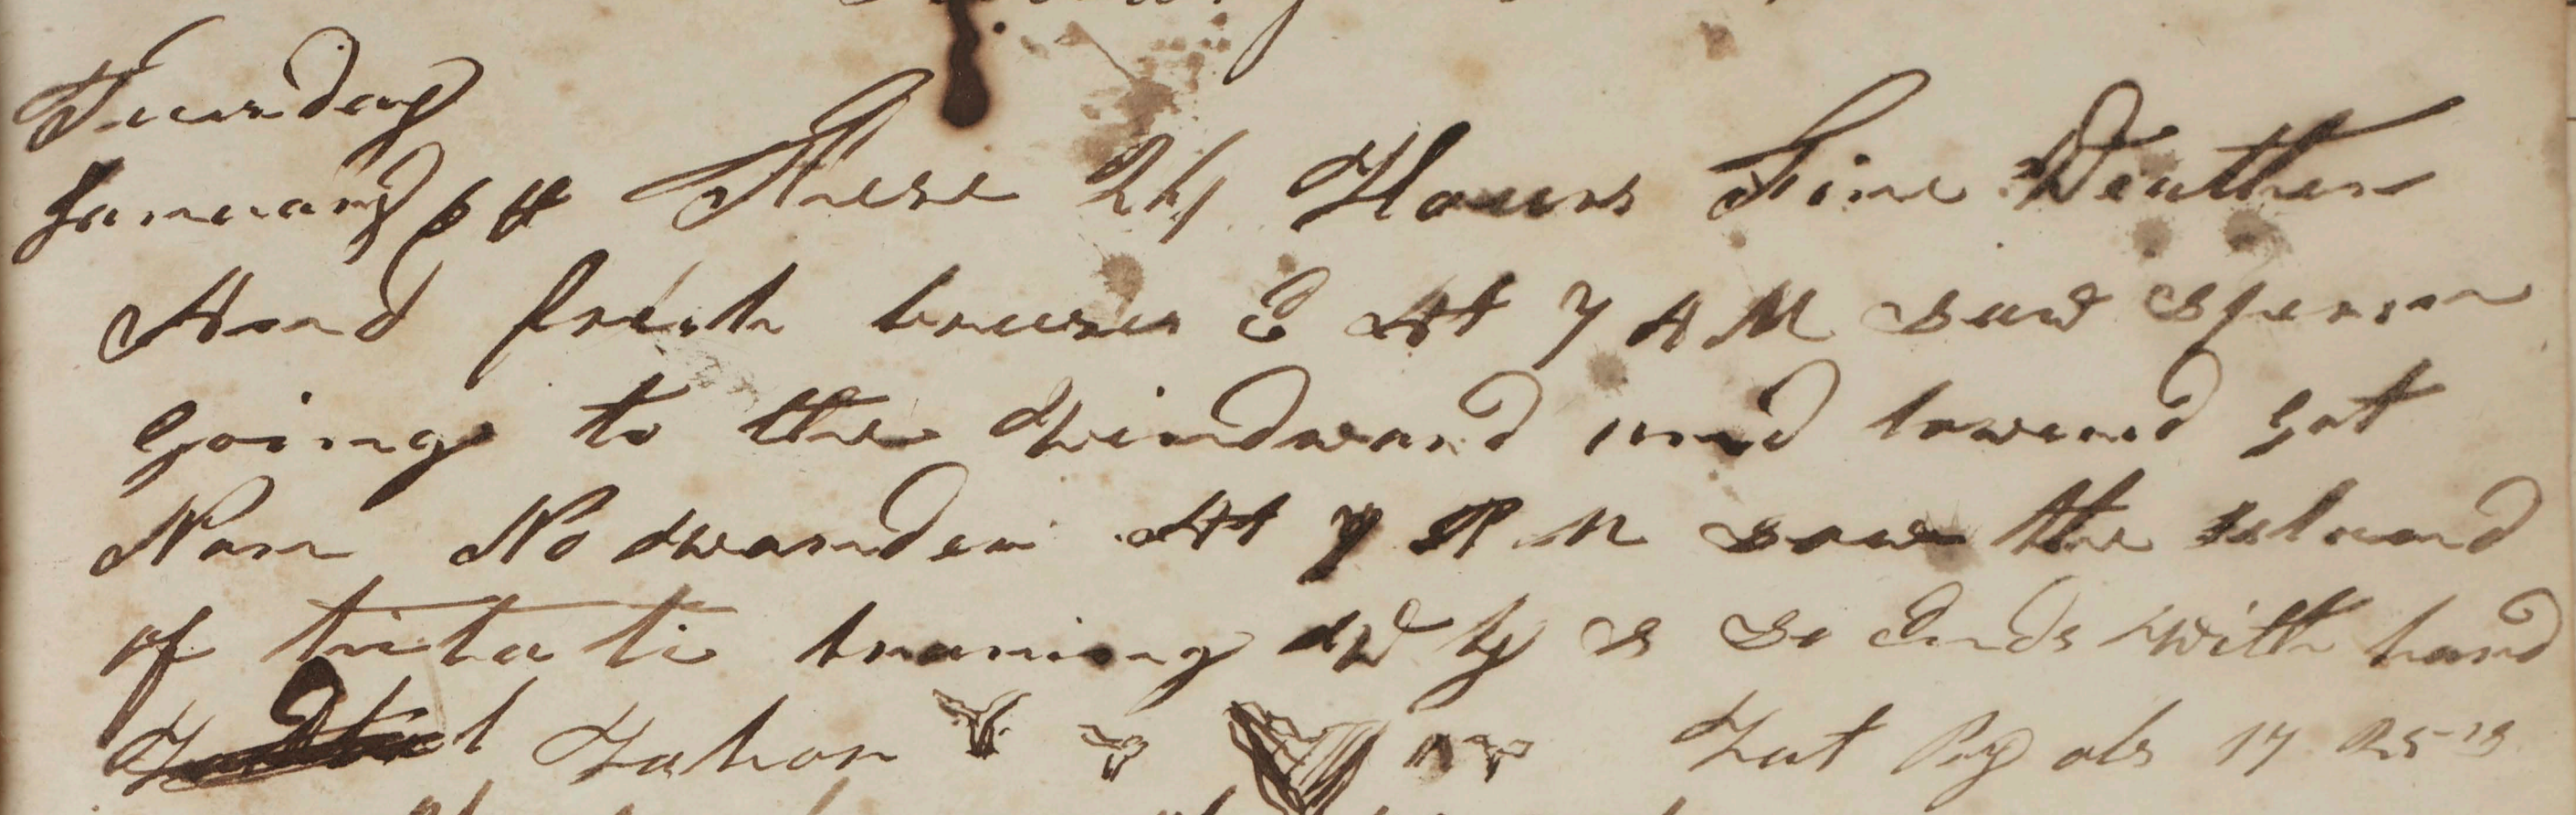 Tuesday
January 6 th These 24 Hours Fine Weather
And fresh breeses E At 7 A M saw sperm
Going to the Windward and lowered Got
Non No wonder At 7 P M saw the island
of bearing W by S So Ends with hard
Lahor Lat by obs 17 25 S